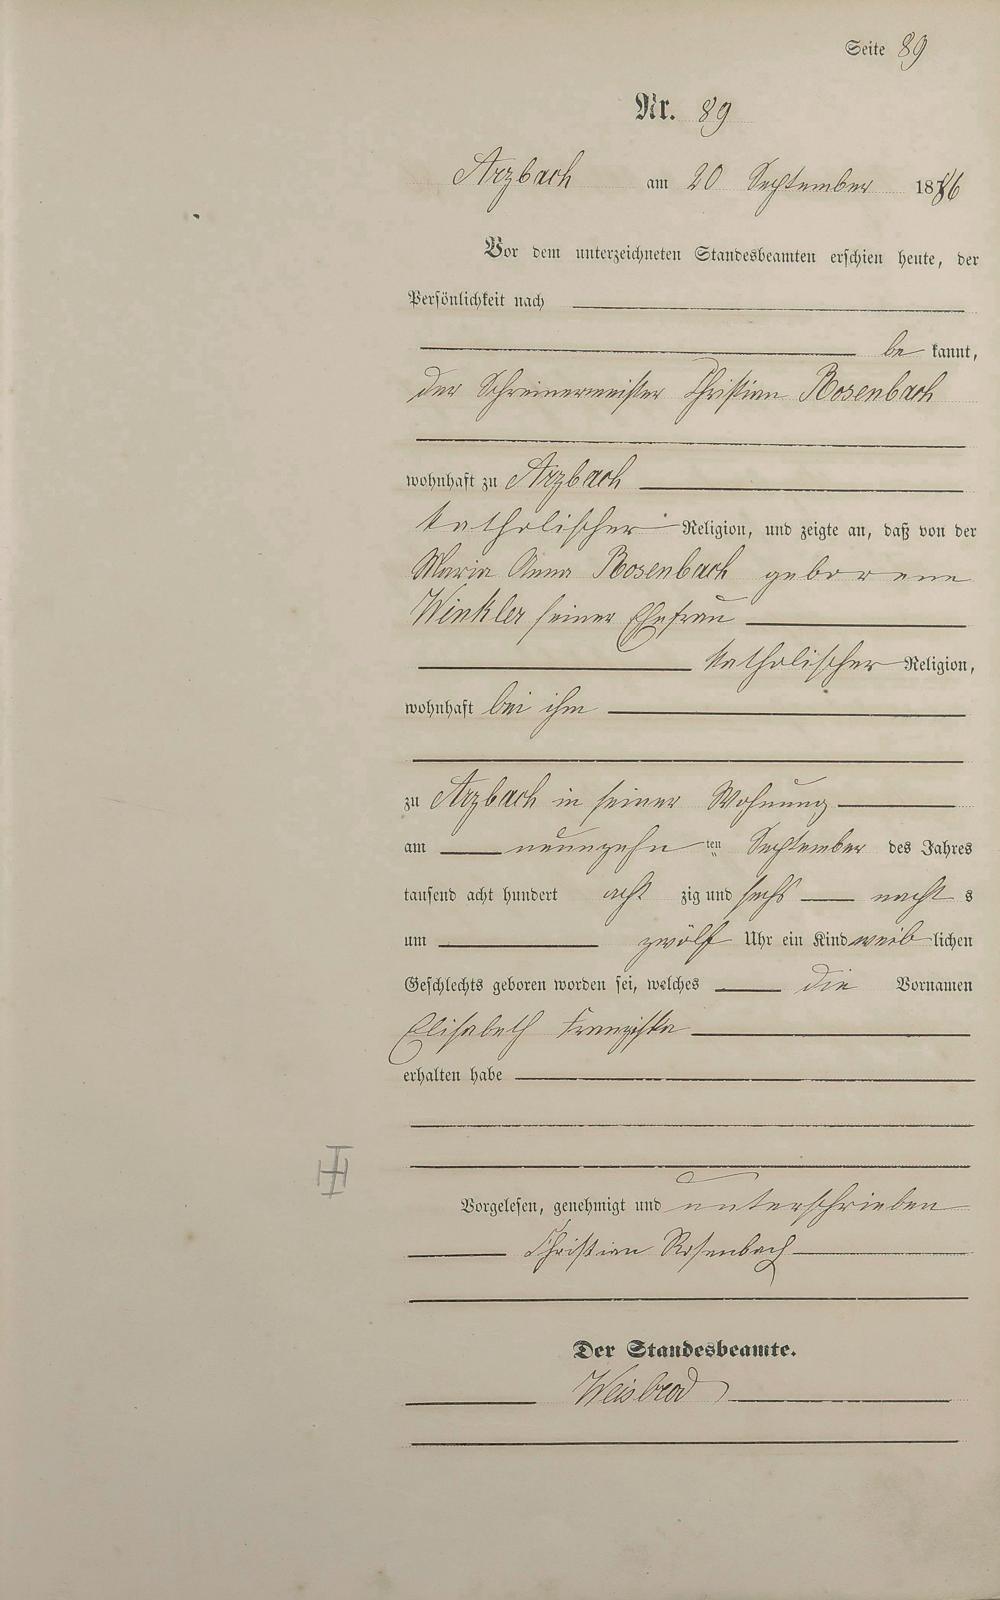 Seite 89
Nr. 89
Arzbach am 20 September 1886
Vor dem unterzeichneten Standesbeamten erschien heute, der
Persönlichkeit nach
be kannt,
der Schreinermeister Christian Rosenbach
wohnhaft zu Arzbach
katholischer Religion, und zeigte an, daß von der
Maria Anna Rosenbach geborene
Winkler seiner Ehefrau
katholischer Religion,
wohnhaft bei ihm
zu Arzbach in seiner Wohnung
am neunzehn ten September des Jahres
tausend acht hundert acht zig und sechs nacht s
um zwölf Uhr ein Kind weib lichen
Geschlechts geboren worden sei, welches die Vornamen
Elisabeth Franziska
erhalten habe
Vorgelesen, genehmigt und unterschrieben
Christian Rosenbach
Der Standesbeamte.
Weisbrod